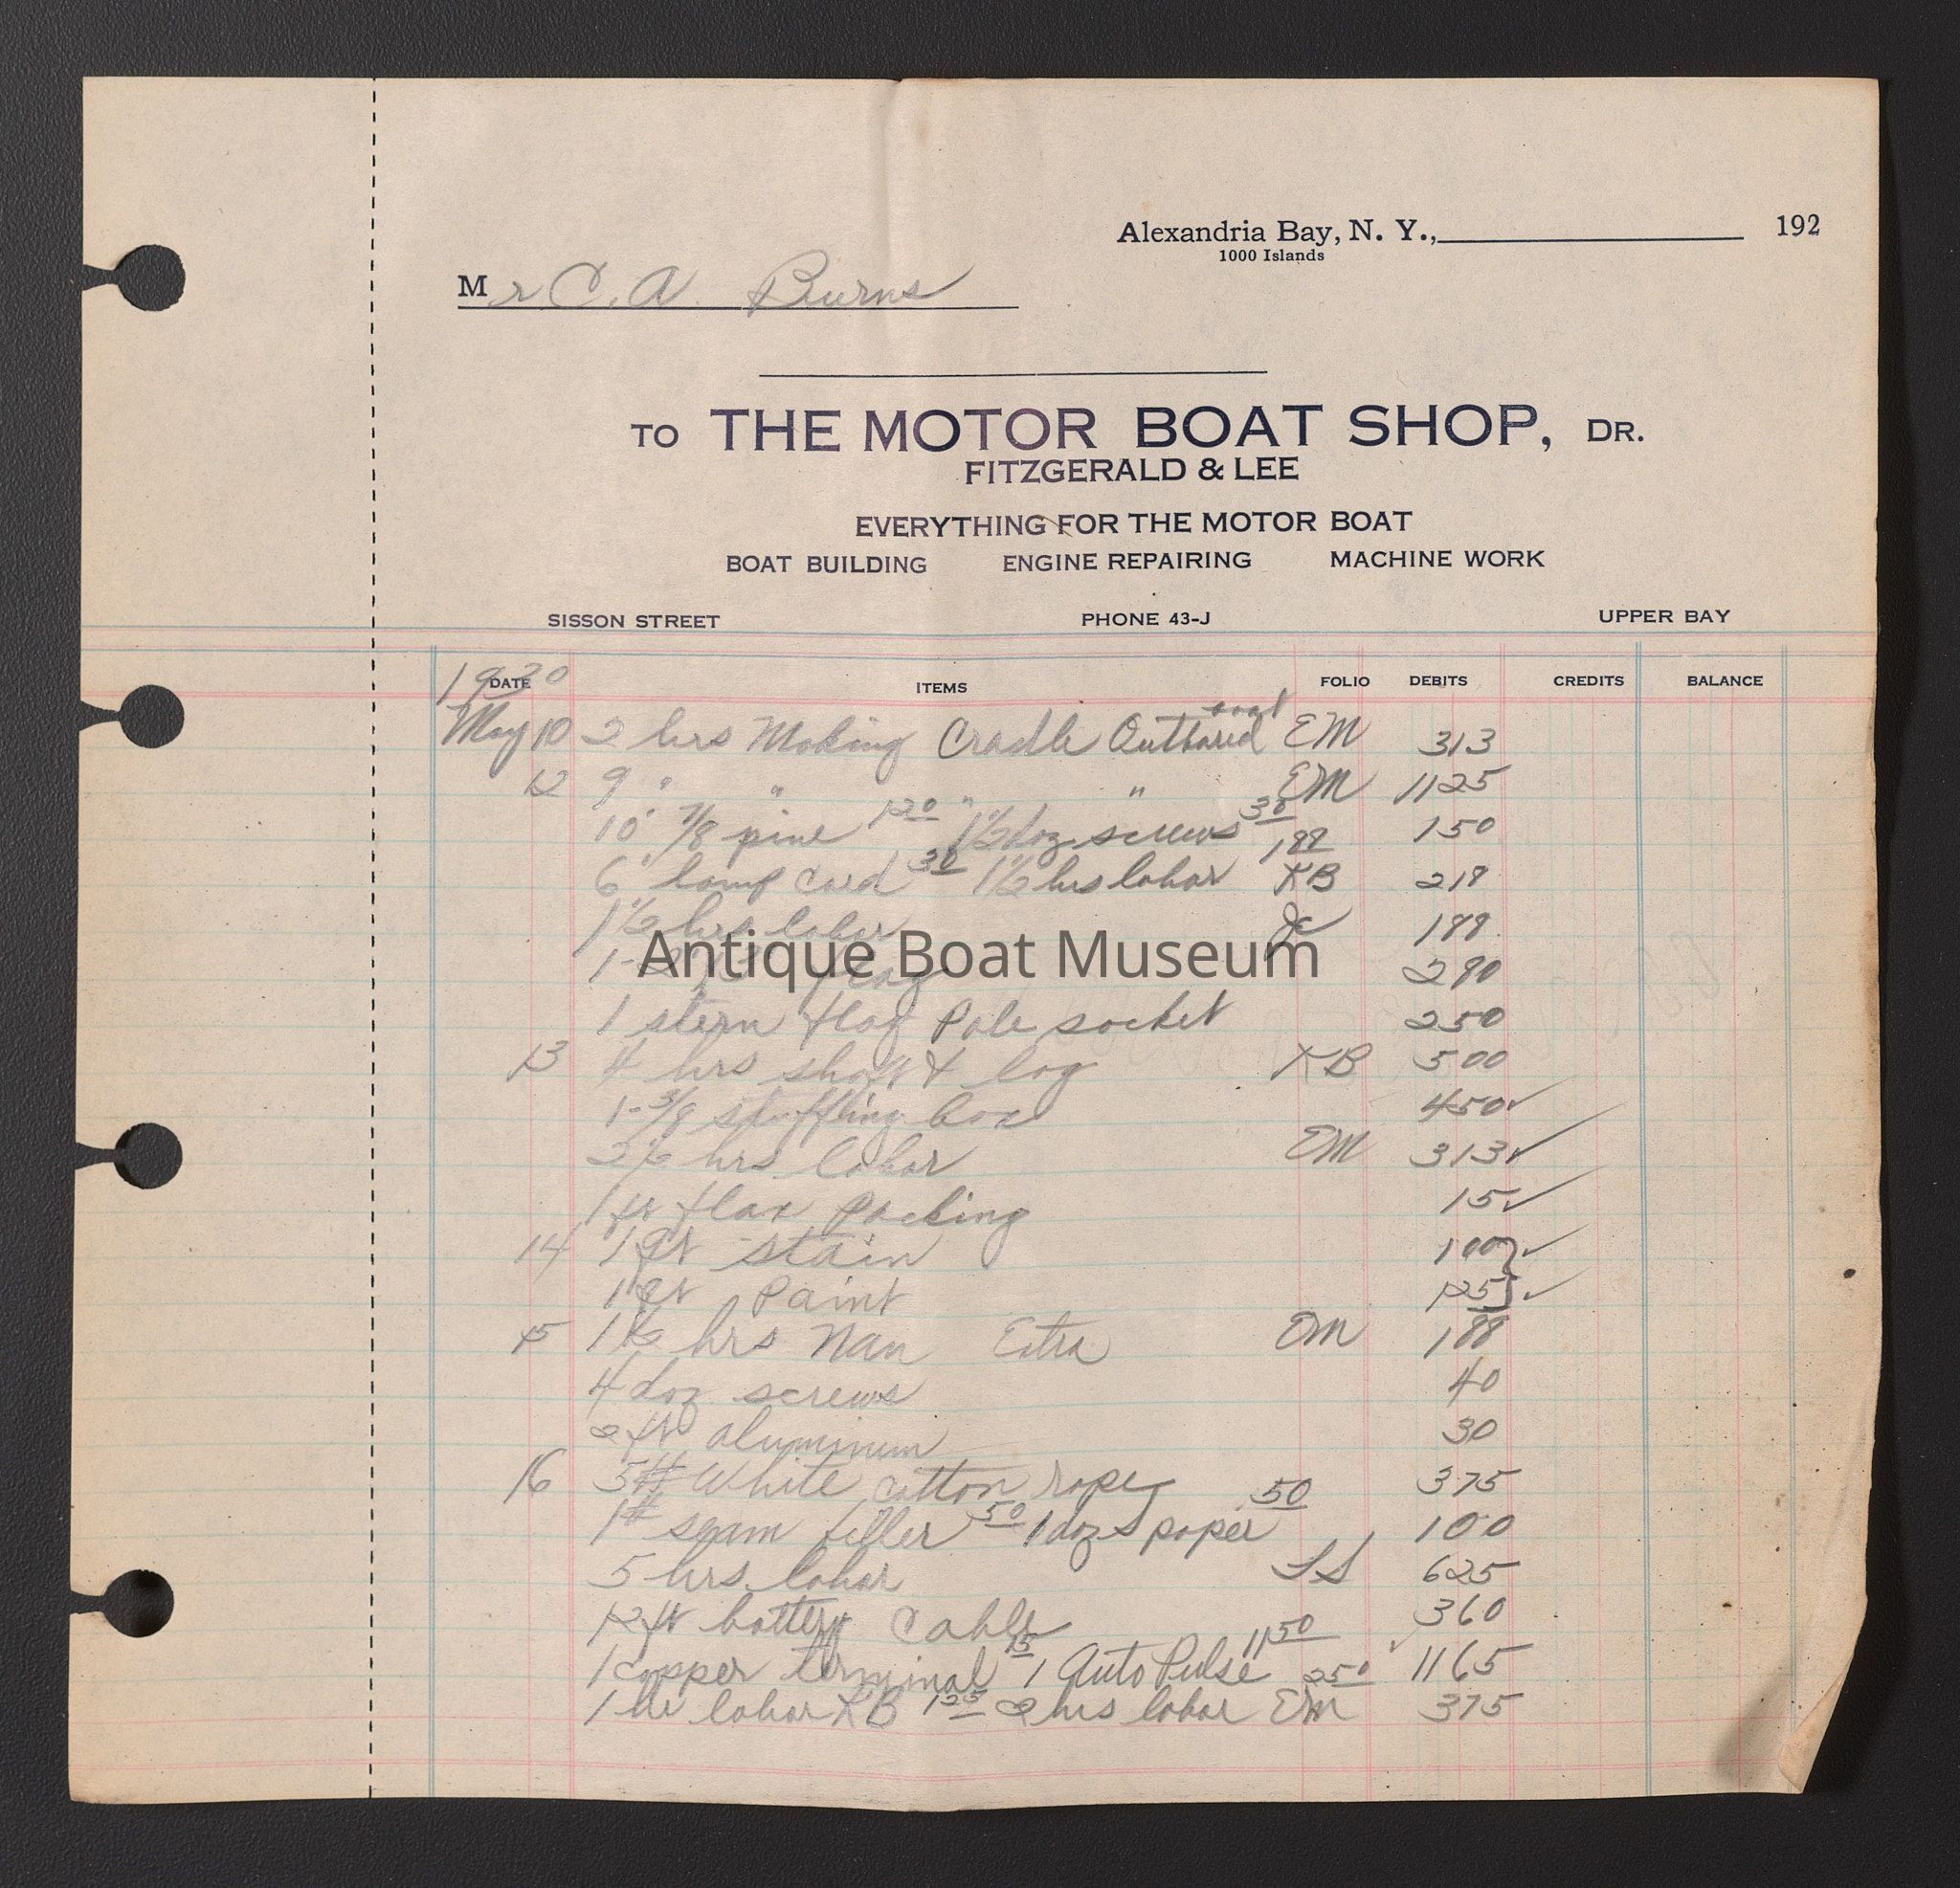 Alexandria Bay, N. Y., 192
1000 Islands
Mr C. A. Burns
TO THE MOTOR BOAT SHOP, DR.
FITZGERALD & LEE
EVERYTHING FOR THE MOTOR BOAT
BOAT BUILDING ENGINE REPAIRING MACHINE WORK
SISSON STREET PHONE 43-J UPPER BAY
1930
DATE ITEMS FOLIO DEBITS CREDITS BALANCE
May 10 2 hrs Making Cradle Outboard boat EM 313
12 9 " " " " EM 1125
10' 7/8 pine 120 1 1/2 doz screws 30 150
6' lamp cord 30 1 1/2 hrs labor 188 KB 218
1 1/2 hrs labor Jc 188
Antique Boat Museum
1- flag 290
1 stern flag Pole socket 250
13 4 hrs shaft & log KB 500
1-3/8 stuffling box 450 ✓
2 1/2 hrs labor EM 313 ✓
1 ft flax Packing 15 ✓
14 1 qt stain 100 ✓
1 qt Paint 125 ✓
15 1 1/2 hrs Nan Extra EM 188
4 doz screws 40
2 ft aluminum 30
16 5# White cotton rope 375
1# seam filler 50 1 doz S paper 50 100
5 hrs labor LS 625
12 ft battery Cable 360
1 copper terminal 15 1 Auto Pulse 1150 1165
1 hr labor KB 125 2 hrs labor EM 250 375